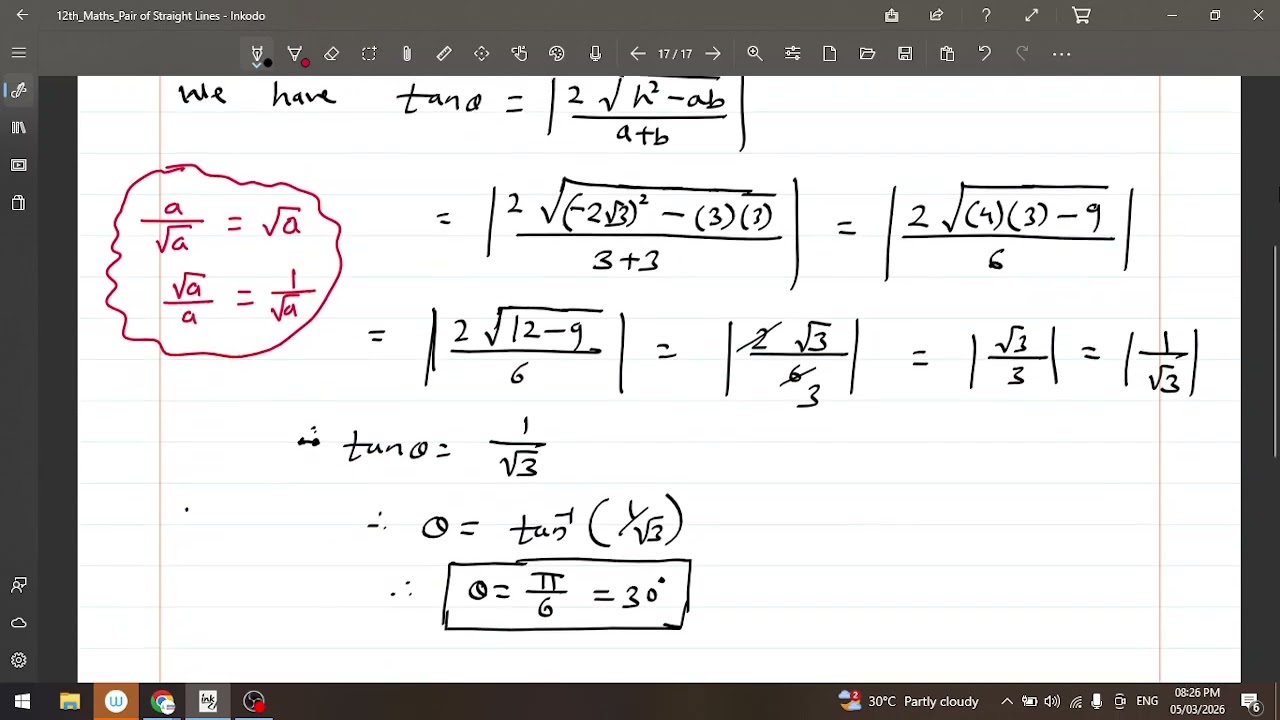 12th_Maths_Pair of Straight Lines - Inkodo
17/17
We have tanθ = |2√(h²-ab) / (a+b)|
a/√a = √a
√a/a = 1/√a
= |2√((-2√3)² - (3)(3)) / (3+3)| = |2√((4)(3) - 9) / 6|
= |2√(12-9) / 6| = |2√3 / 6 3| = |√3/3| = |1/√3|
∴ tanθ = 1/√3
∴ θ = tan⁻¹(1/√3)
∴ θ = π/6 = 30°
W
ink
2
30°C Partly cloudy
ENG
08:26 PM
05/03/2026
6